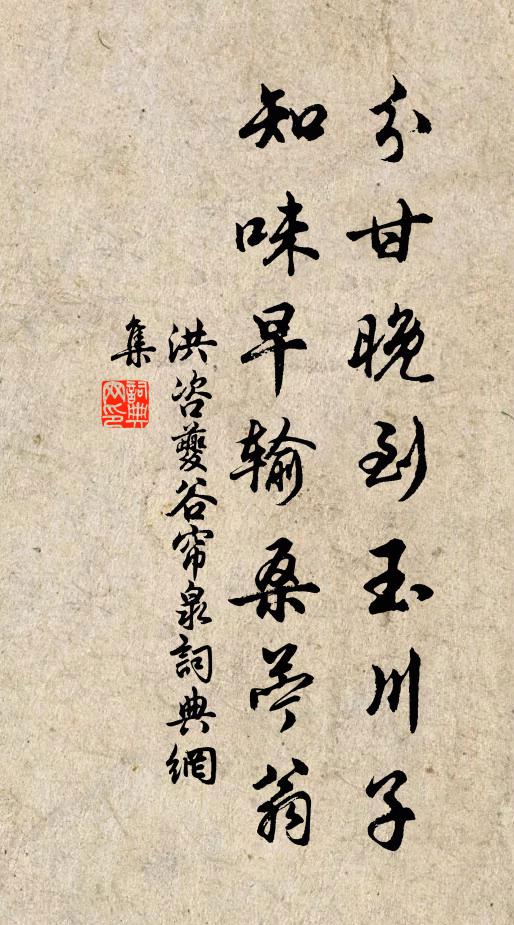 分甘晚到玉川子
知味早输桑苎翁
洪咨夔谷帘泉詞典網
集
詞典網印